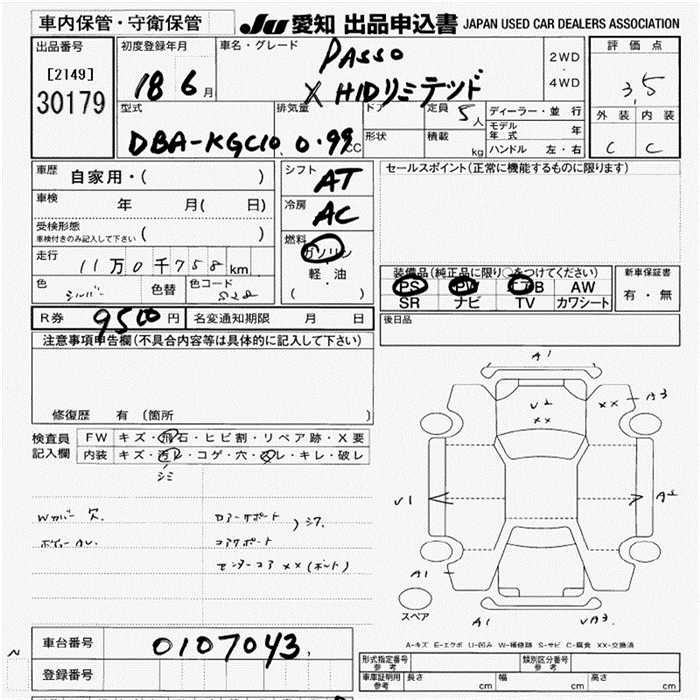 車内保管・守衛保管
JU 愛知 出品申込書 JAPAN USED CAR DEALERS ASSOCIATION
出品番号
[2149]
30179
初度登録年月
18 6月
車名・グレード
PASSO
X HIDリミテッド
2WD
・
4WD
評価点
3.5
外装 内装
C C
型式
DBA-KGC10
排気量
0.99 CC
ドア
形状
定員
5人
積載
kg
ディーラー・並行
モデル年式 年
ハンドル 左・右
車歴
自家用・( )
車検
年 月( 日)
受検形態
車検付きのみ記入して下さい ( )
走行
11万0千758km
色
シルバー
色替
色コード
S28
シフト
AT
冷房
AC
燃料
ガソリン
・
軽・油
( )
セールスポイント(正常に機能するものに限ります)
装備品(純正品に限り○をつけてください)
PS PW エアB AW
SR ナビ TV カワシート
新車保証書
有・無
後日品
R券 9500円
名変通知期限 月 日
注意事項申告欄(不具合内容等は具体的に記入して下さい)
修復歴 有 (箇所 )
検査員
記入欄
FW キズ・飛石・ヒビ割・リペア跡・X要
内装 キズ・汚レ・コゲ・穴・スレ・キレ・破レ
シミ
Wカバー欠.
コアサポート
センターコア××(ボルト)
A1
U2
××
××
A3
U1
A2
A1
スペア
A1
UA3.
A-キズ E-エクボ U-凹み W-補修跡 S-サビ C-腐食 XX-交換済
車台番号
0107043
登録番号
形式指定番号
参考
類別区分番号
参考
車庫証明用
参考
長さ cm 幅 cm 高さ cm